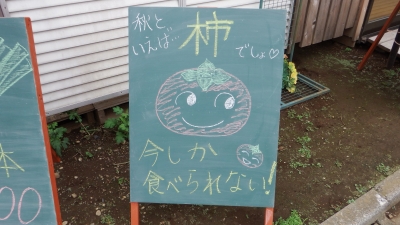 秋と
いえば…
柿
でしょ♡
今しか
食べられない!
本
00